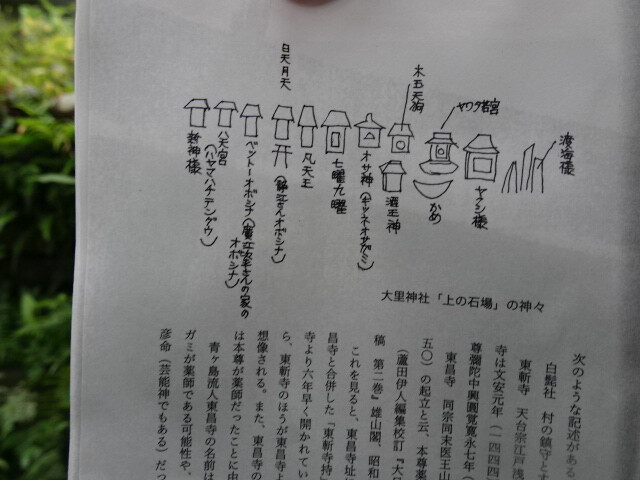 渡海様
ヤクシ様
ヤワタ若宮
かめ
木玉天狗
酒王神
オサ神(キツネオサガミ)
七曜九曜
凡天王
日天月天
八天宮
(ハヤマハナテングウ)
新神様
大里神社「上の石場」の神々
次のような記述がある
白髭社 村の鎮守とす
東斬寺 天台宗江戸浅
寺は文安元年(一四四四
尊彌陀中興圓覚寛永七年(
東昌寺 同宗同末医王山
五〇)の起立と云、本尊薬
(蘆田伊人編集校訂『大日
稿 第二巻』雄山閣、昭和
これを見ると、東昌寺址
昌寺と合併した「東斬寺持
寺より六年早く開かれてい
ら、東斬寺のほうが東昌寺よ
想像される。また、東昌寺の
は本尊が薬師だったことに由
青ヶ島流人東昌寺の名前は
ガミが薬師である可能性や、
彦命(芸能神でもある)だっ